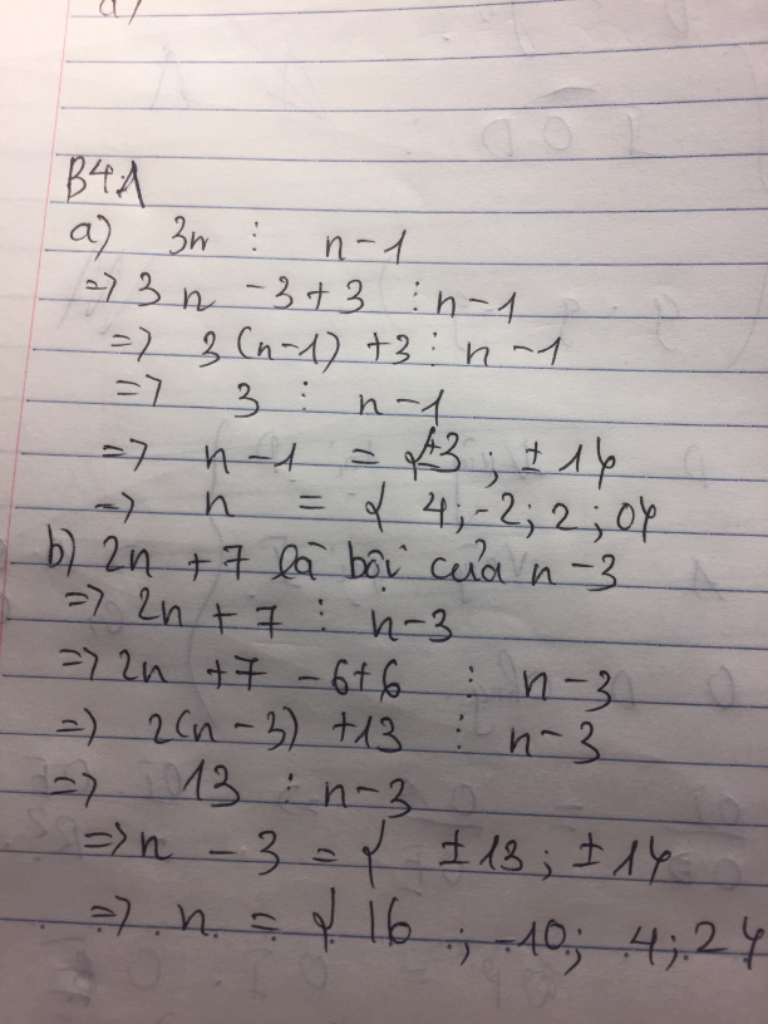 a)
B4A
a) 3n ⋮ n - 1
=> 3n - 3 + 3 ⋮ n - 1
=> 3(n-1) + 3 ⋮ n - 1
=> 3 ⋮ n - 1
=> n - 1 = {±3; ±1}
=> n = {4; -2; 2; 0}
b) 2n + 7 là bội của n - 3
=> 2n + 7 ⋮ n - 3
=> 2n + 7 - 6 + 6 ⋮ n - 3
=> 2(n - 3) + 13 ⋮ n - 3
=> 13 ⋮ n - 3
=> n - 3 = {±13; ±1}
=> n = {16; -10; 4; 2}